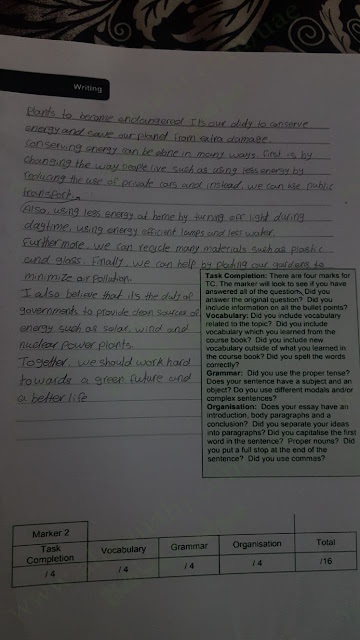 Writing
Plants to become endangered. It's our duty to conserve
energy and save our planet from extra damage.
Conserving energy can be done in many ways. First is by
changing the way people live such as using less energy by
reducing the use of private cars and instead, we can use public
transport.
Also, using less energy at home by turning off light during
daytime, using energy efficient lamps and less water.
Furthermore, we can recycle many materials such as plastic
and glass. Finally, we can help by our gardens to
minimize air pollution.
I also believe that its the duty of
governments to provide clean sources of
energy such as solar, wind and
nuclear power plants.
Together, we should work hard
towards a green future and
a better life
Task Completion: There are four marks for
TC. The marker will look to see if you have
answered all of the questions, Did you
answer the original question? Did you
include information on all the bullet points?
Vocabulary: Did you include vocabulary
related to the topic? Did you include
vocabulary which you learned from the
course book? Did you include new
vocabulary outside of what you learned in
the course book? Did you spell the words
correctly?
Grammar: Did you use the proper tense?
Does your sentence have a subject and an
object? Do you use different modals and/or
complex sentences?
Organisation: Does your essay have an
introduction, body paragraphs and a
conclusion? Did you separate your ideas
into paragraphs? Did you capitalise the first
word in the sentence? Proper nouns? Did
you put a full stop at the end of the
sentence? Did you use commas?
Marker 2
Task Completion Vocabulary Grammar Organisation Total
/ 4 / 4 / 4 / 4 /16